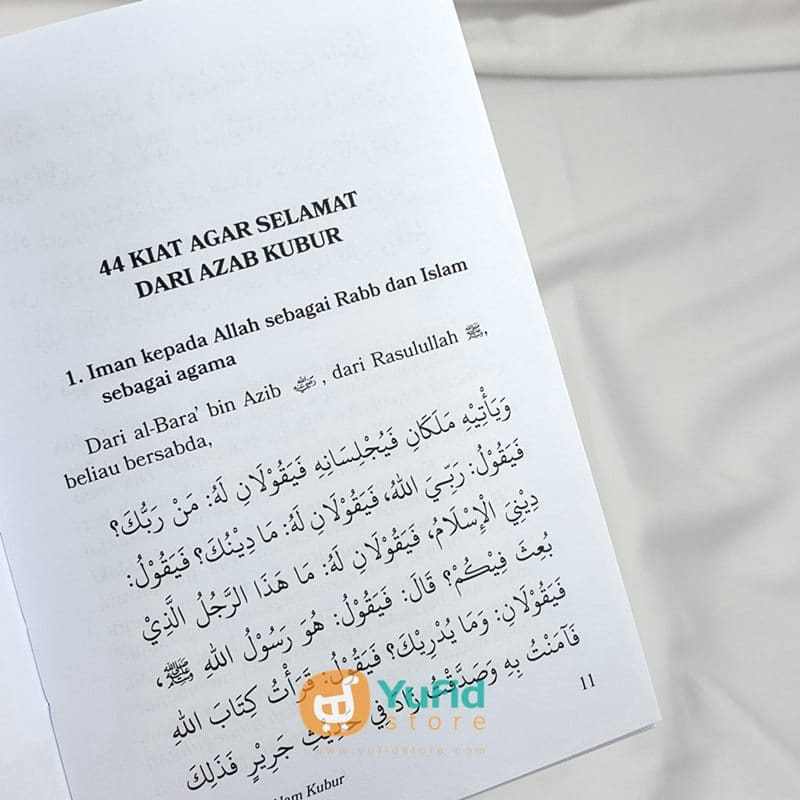 44 KIAT AGAR SELAMAT
DARI AZAB KUBUR
1. Iman kepada Allah sebagai Rabb dan Islam
sebagai agama
Dari al-Bara' bin Azib رضي الله عنه, dari Rasulullah ﷺ,
beliau bersabda,
وَيَأْتِيْهِ مَلَكَانِ فَيُجْلِسَانِهِ فَيَقُوْلَانِ لَهُ: مَنْ رَبُّكَ؟
فَيَقُوْلُ: رَبِّيَ اللهُ، فَيَقُوْلَانِ لَهُ: مَا دِيْنُكَ؟ فَيَقُوْلُ:
دِيْنِيَ الْإِسْلَامُ، فَيَقُوْلَانِ لَهُ: مَا هَذَا الرَّجُلُ الَّذِيْ
بُعِثَ فِيْكُمْ؟ قَالَ: فَيَقُوْلُ: هُوَ رَسُوْلُ اللهِ ﷺ،
فَيَقُوْلَانِ: وَمَا يُدْرِيْكَ؟ فَيَقُوْلُ: قَرَأْتُ كِتَابَ اللهِ
فَآمَنْتُ بِهِ وَصَدَّقْتُ، زَادَ فِي حَدِيْثِ جَرِيْرٍ فَذَلِكَ
11
Alam Kubur
Yufid
store
www.yufidstore.com